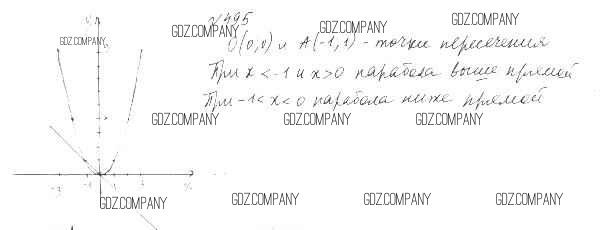 №495
O(0,0) и A(-1,1) - точки пересечения
При x < -1 и x > 0 парабола выше прямой
При -1 < x < 0 парабола ниже прямой
GDZ.COMPANY
GDZ.COMPANY
GDZ.COMPANY
GDZ.COMPANY
GDZ.COMPANY
GDZ.COMPANY
GDZ.COMPANY
GDZ.COMPANY
GDZ.COMPANY
GDZ.COMPANY
GDZ.COMPANY